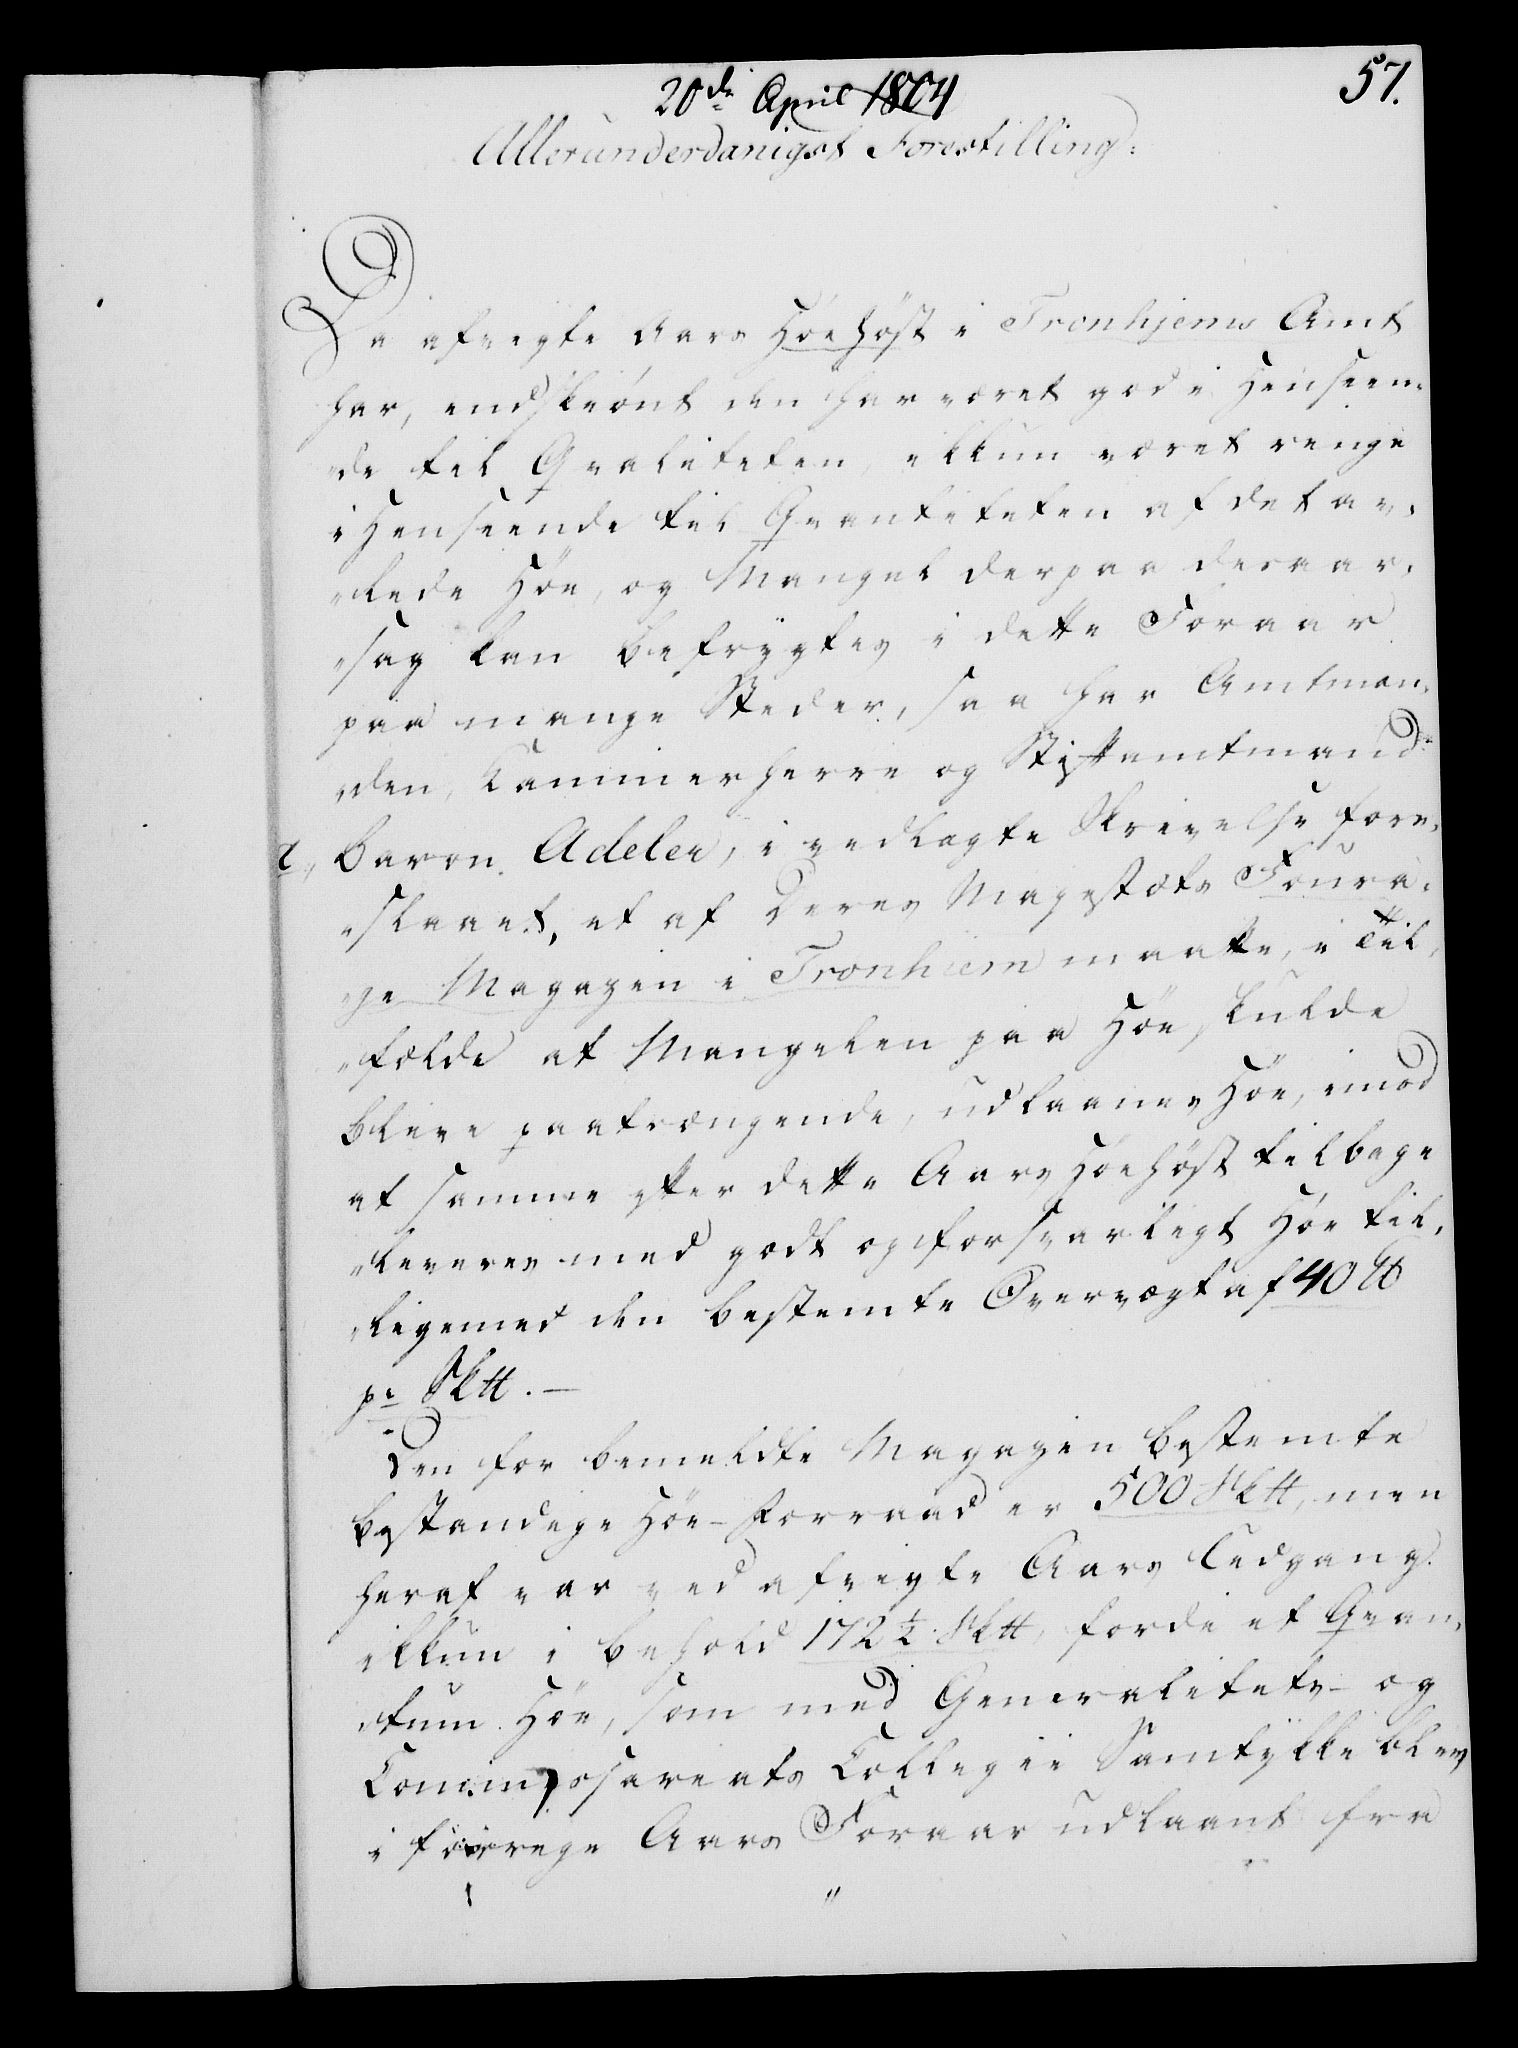 57.
20de April 1804
Allerunderdanigst Forestilling:
Da afvigte Aars Höehöst i Tronhjems Amt
har, endskiönt den har været god i Henseen-
„de til Qvaliteten, ikkun været ringe
i Henseende til Qvantiteten af det av-
„lede Höe, og Mangel derpaa deraar-
„sag kan befrygtes i dette Foraar
paa mange Steder, saa har Amtman-
„den, Kammerherre og Stiftamtmand
a, Baron Adeler, i vedlagte Skrivelse fore-
„slaaet, at af Deres Majestæts Foura-
„ge Magazin i Tronhiem maatte, i Til-
„fælde at Mangelen paa Höe skulde
blive paatrængende, udlaanes Höe, imod
at samme efter dette Aars Höehöst tilbage
„leveres med godt og forsvarligt Höe til-
„ligemed den bestemte Overvægt af 40 ℔
pr Sk℔. —
Den for bemeldte Magazin bestemte
bestandige Höe-Forraad er 500 Sk℔, men
heraf var ved afvigte Aars Udgang
ikkun i behold 172½ Sk℔, fordi et Qvan-
„tum Höe, som med Generalitets- og
Commissariats Collegii Samtykke blev
i forrige Aars Foraar udlaant fra